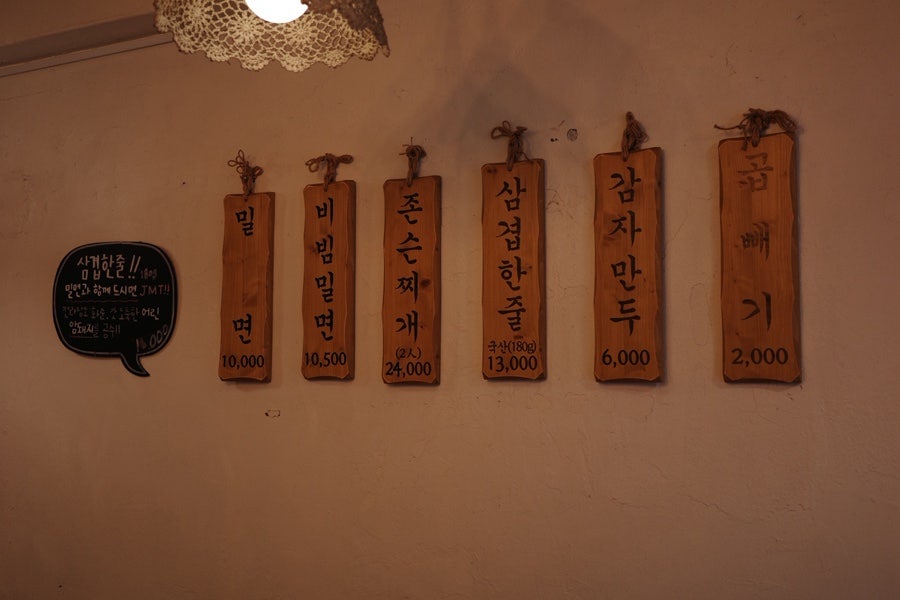 삼겹한줄!! 180g
밀면과 함께 드시면 JMT!!
어린
암돼지를 공수!!
밀면
10,000
비빔밀면
10,500
존슨찌개
(2人)
24,000
삼겹한줄
국산(180g)
13,000
감자만두
6,000
곱빼기
2,000